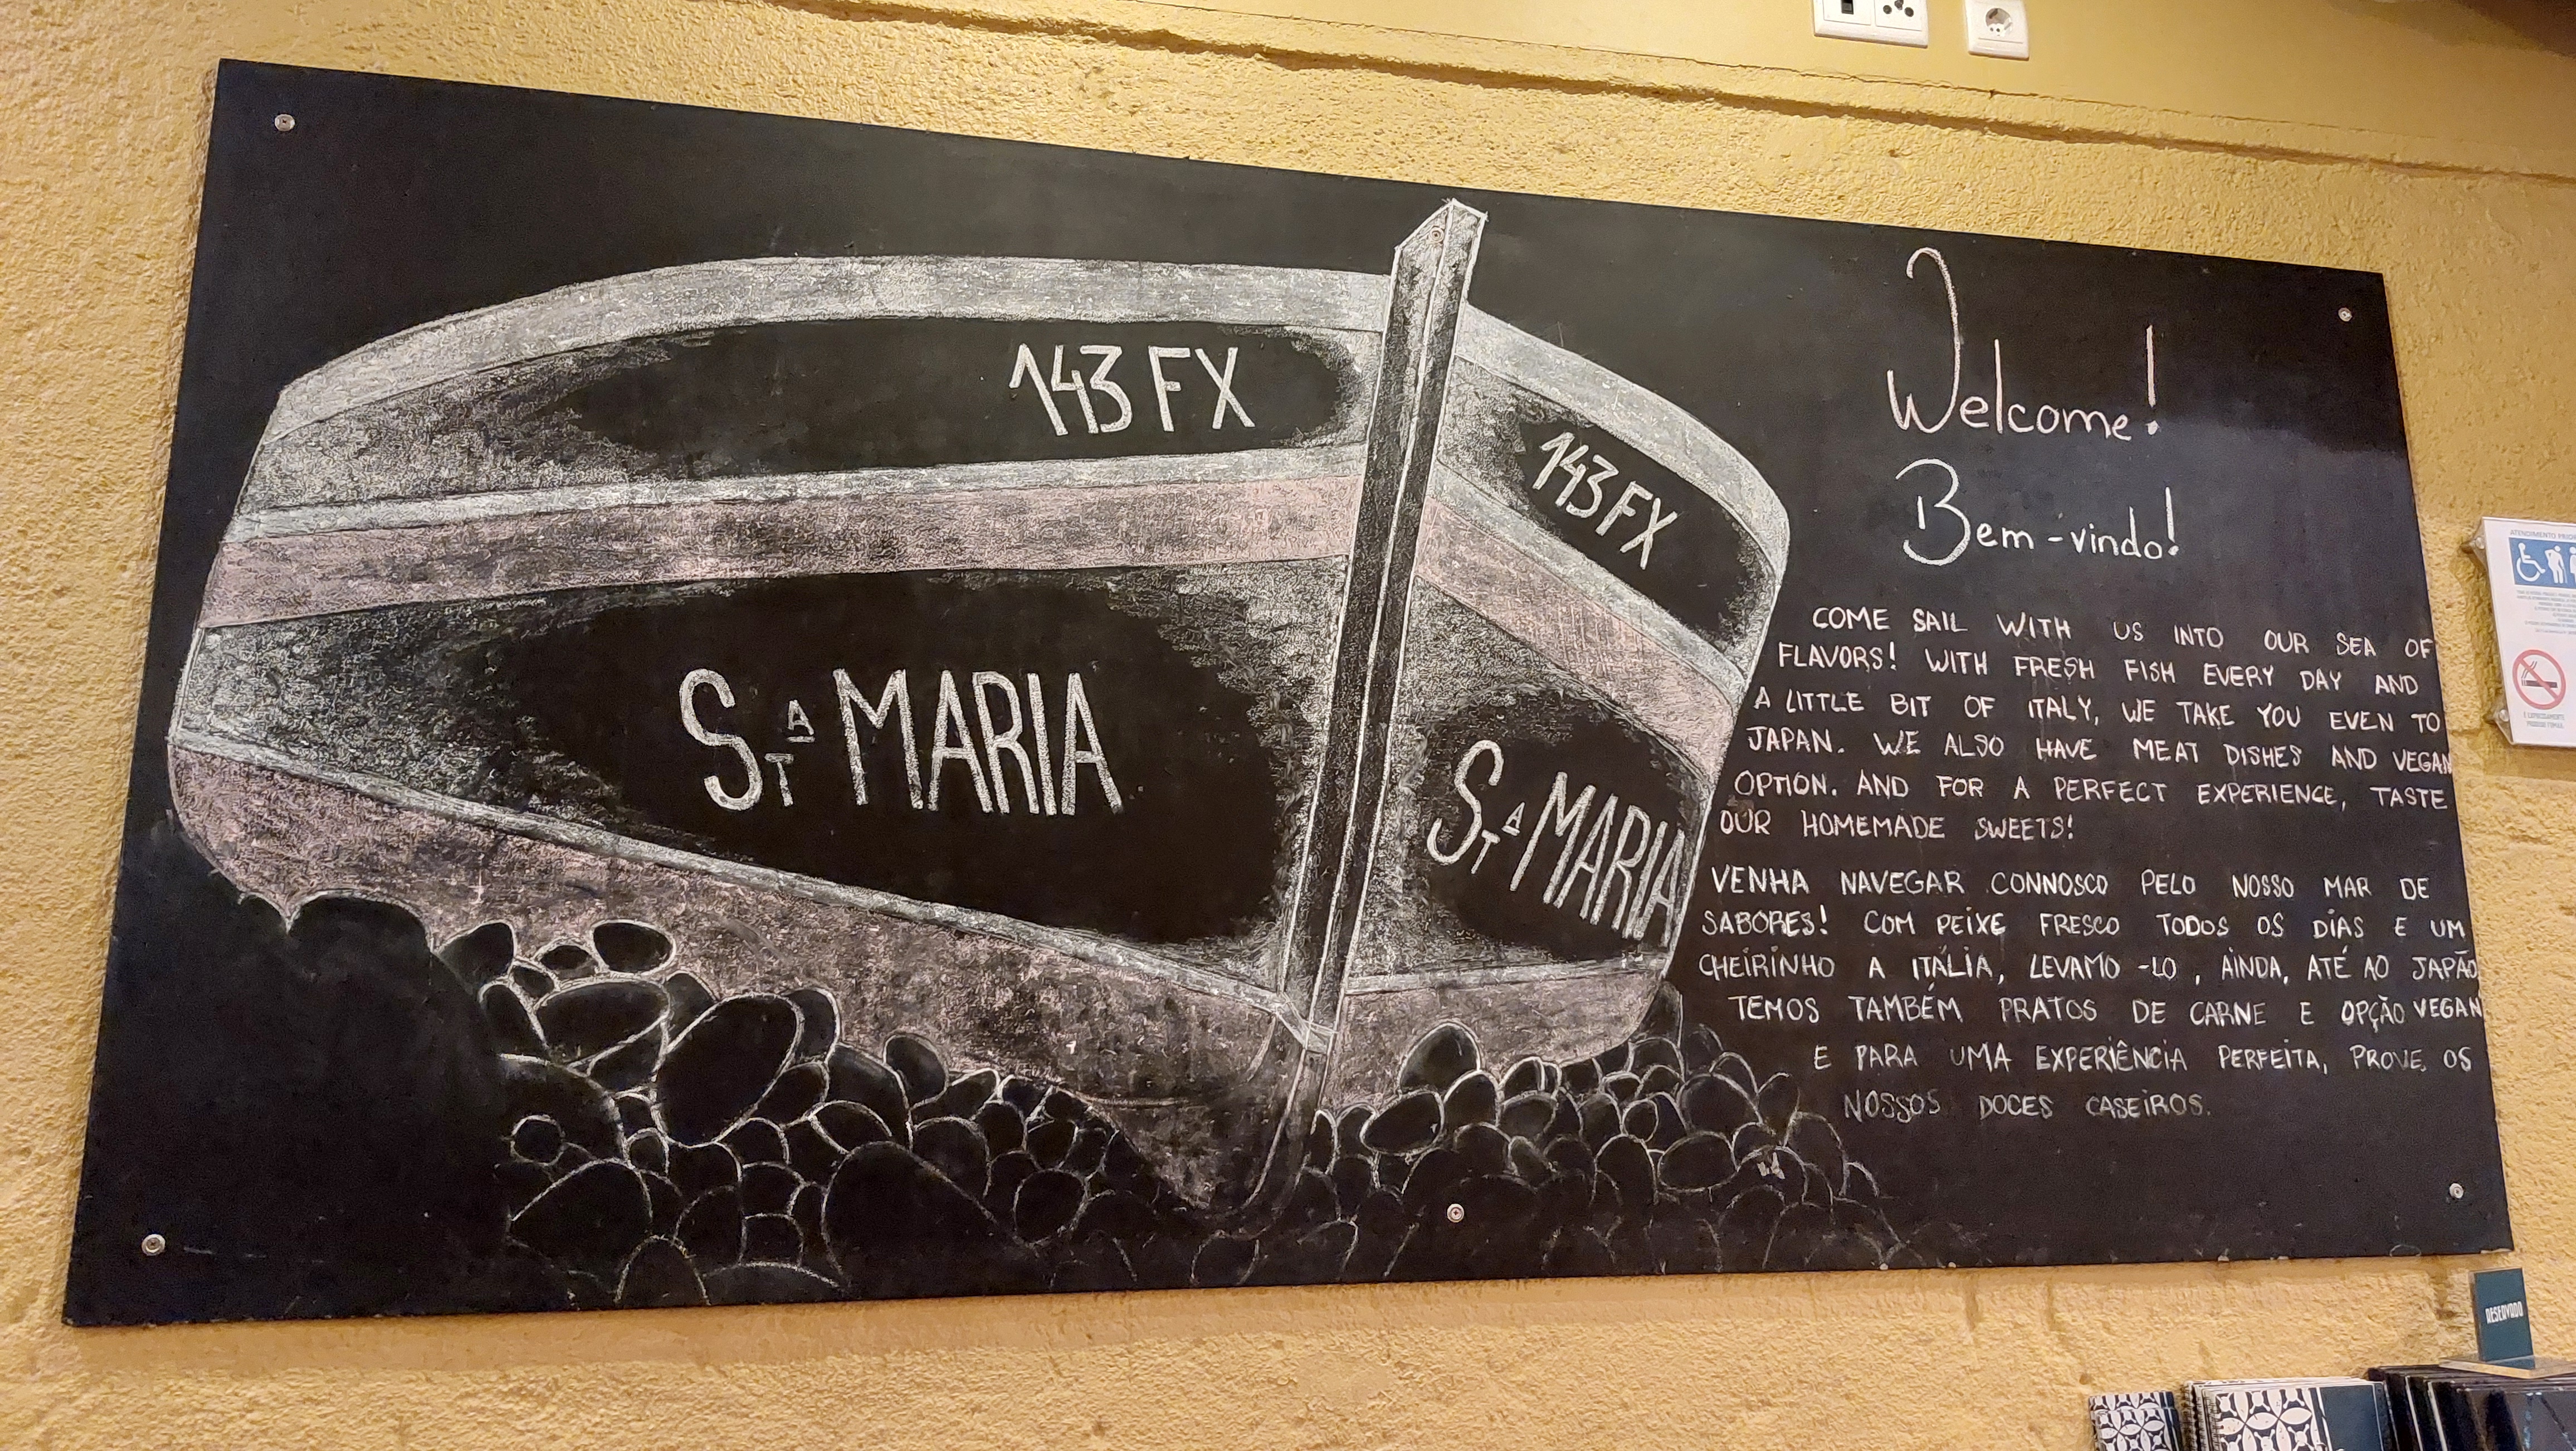 143 FX
143 FX
STA MARIA
STA MARIA
Welcome!
Bem-vindo!
COME SAIL WITH US INTO OUR SEA OF
FLAVORS! WITH FRESH FISH EVERY DAY AND
A LITTLE BIT OF ITALY, WE TAKE YOU EVEN TO
JAPAN. WE ALSO HAVE MEAT DISHES AND VEGAN
OPTION. AND FOR A PERFECT EXPERIENCE, TASTE
OUR HOMEMADE SWEETS!
VENHA NAVEGAR CONNOSCO PELO NOSSO MAR DE
SABORES! COM PEIXE FRESCO TODOS OS DÍAS E UM
CHEIRINHO A ITÁLIA, LEVAMO-LO, AINDA, ATÉ AO JAPÃO
TEMOS TAMBÉM PRATOS DE CARNE E OPÇÃO VEGAN
E PARA UMA EXPERIÊNCIA PERFEITA, PROVE OS
NOSSOS DOCES CASEIROS.
ATENDIMENTO
RESERVADO